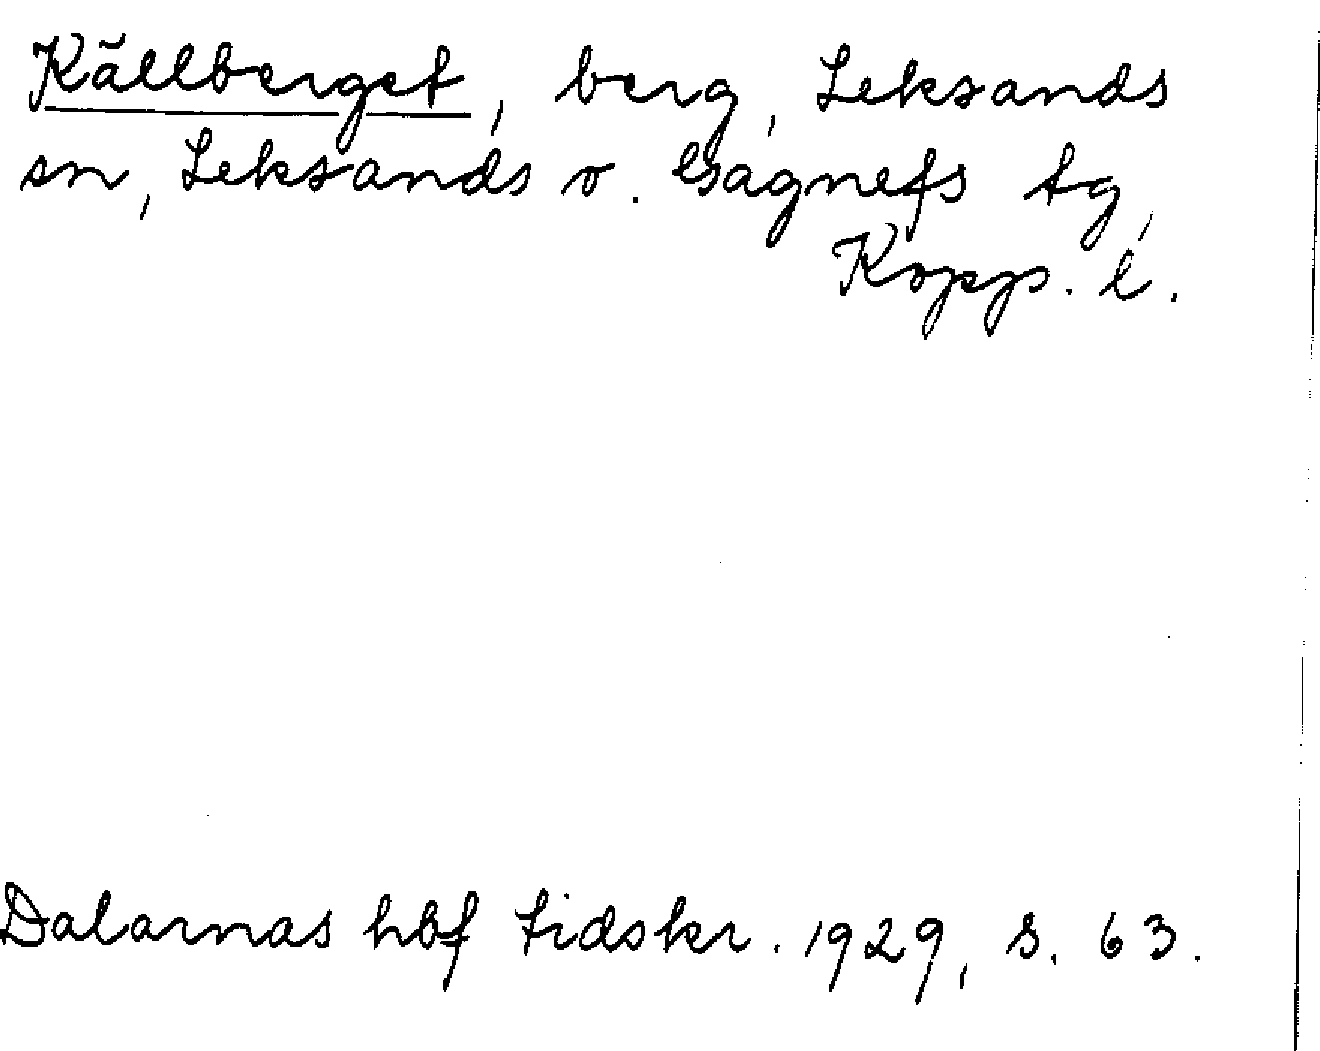 Källberget, berg, Leksands
sn, Leksands o. Gagnefs tg,
Kopp. l.
Dalarnas hbf tidskr. 1929, s. 63.